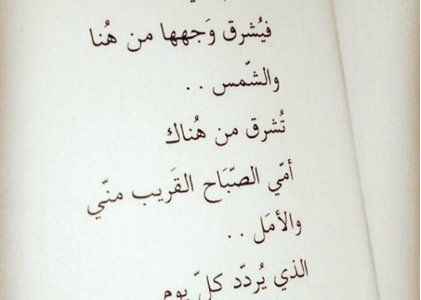 فيُشرق وَجهها من هُنا
والشّمس . .
تُشرق من هُناك
أمّي الصّبَاح القَريب منّي
والأمَل . .
الذي يُردّد كلّ يوم